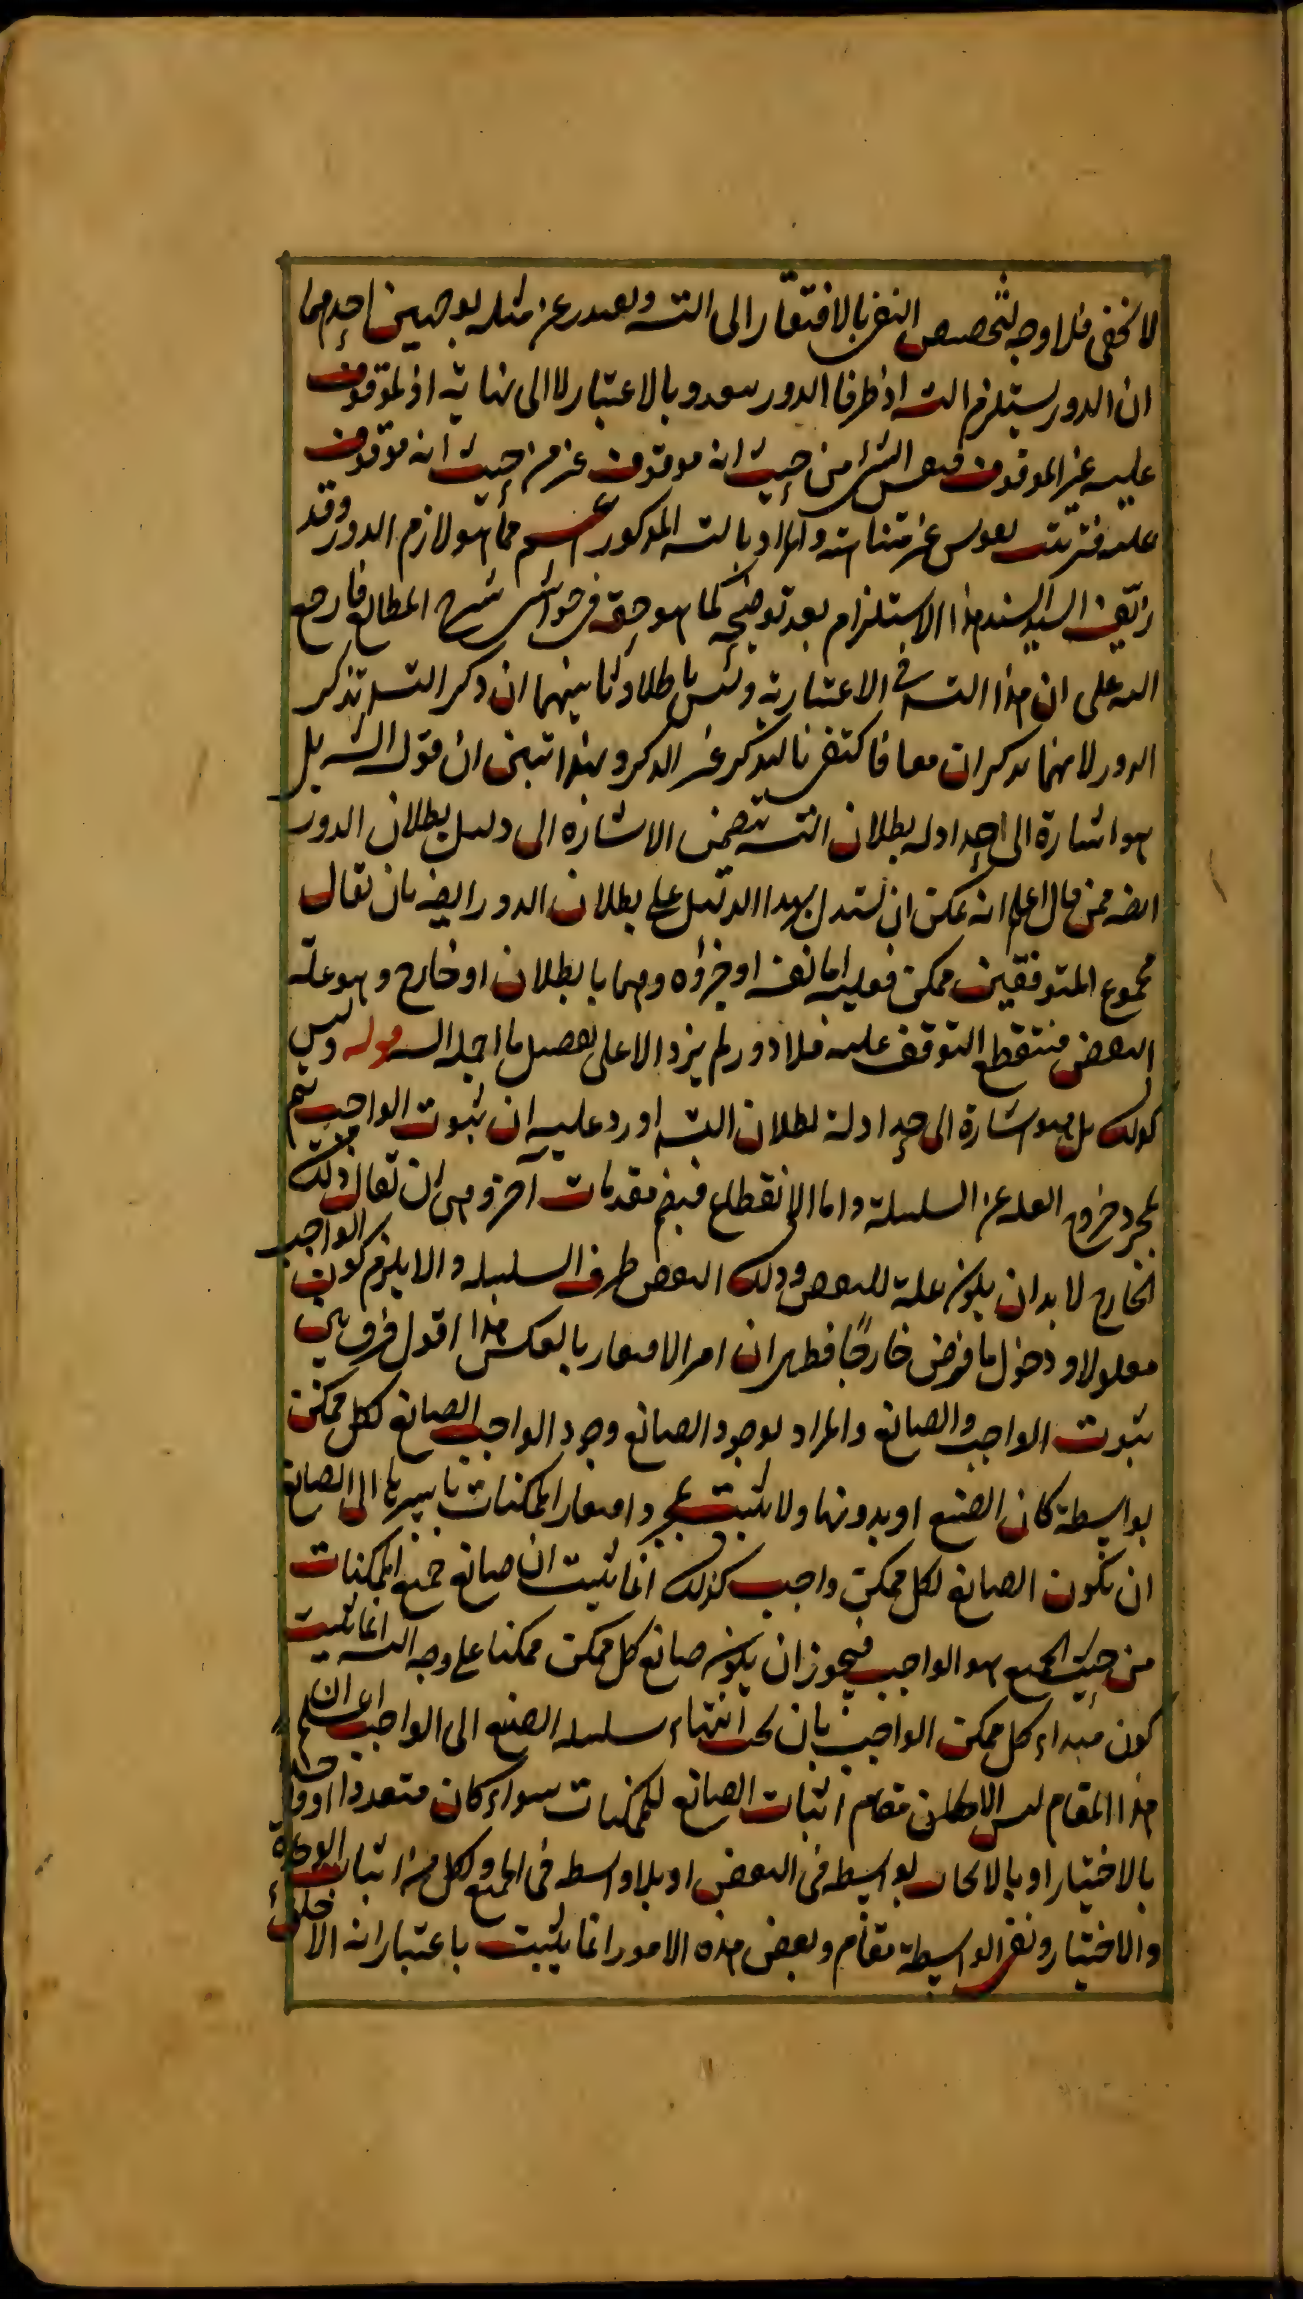 لا يخفى فلا وجه لتخصيص النفى بالافتقار الى التسه ويعتذر عن مثله بوجهين احدهما
ان الدور يستلزم التسه اذ طرفا الدور يتعدد بالاعتبار لا الى نهاية اذ الموقوف
عليه غير الموقوف فنفس الشئ من حيث انه موقوف غيره من حيث انه موقوف
عليه فترتب نفوس غير متناهية والمراد بالتسه المذكور اعم مما هو لازم الدور وقد
زيّف السيد السند هذا الاستلزام بعد توضيحه كما هو حقه فى حواشى شرح المطالع فارجع
اليه على ان هذا التسه فى الاعتبارية وليس باطلا وثانيهما ان ذكر التسه تذكر
الدور لانهما يذكران معا فاكتفى بالتذكر عن الذكر وبهذا تبين ان قوله الشه بل
هو اشارة الى احد ادلة بطلان التسه يتضمن الاشارة الى دليل بطلان الدور
ايضه فمن قال اعلم انه يمكن ان يستدل بهذا الدليل على بطلان الدور ايضه بان يقال
مجموع المتوقفين ممكن فعلته اما نفسه او جزؤه وهما باطلان او خارج وهو علة
البعض فينقطع التوقف عليه فلا دور لم يزد الا على تفصيل ما اجمله الشه قوله وليس
كذلك بل هو اشارة الى احد ادلة بطلان التسه اورد عليه ان ثبوت الواجب يتم
بمجرد خروج العلة عن السلسلة واما الانقطاع فبضم مقدمات آخر وهى ان يقال ذلك
الخارج لا بد ان يكون علة للبعض وذلك البعض طرف السلسلة والا يلزم كون الواجب
معلولا ودخول ما فرض خارجًا فظهر ان امر الافتقار بالعكس هذا اقول فرق بين
ثبوت الواجب والصانع والمراد بوجود الصانع وجود الواجب الصانع لكل ممكن
بواسطة كان الصنع او بدونها ولا يثبت بمجرد افتقار الممكنات باسرها الى الصانع
ان يكون الصانع لكل ممكن واجب كذلك انما يثبت ان صانع جميع الممكنات
من حيث الجميع هو الواجب فيجوز ان يكون صانع كل ممكن ممكنا على وجه التسه انما يثبت
كون مبداء كل ممكن الواجب بان يجب انتهاء سلسلة الصنع الى الواجب اعلم ان
هذا المقام ليس الا مقام اثبات الصانع للممكنات سواء كان متعددا او واحدا
بالاختيار او بالايجاب بواسطة فى البعض او بلا واسطة فى الجميع ولكل من اثبات الوحدة
والاختيار ونفى الواسطة مقام وبعض هذه الامور انما يثبت باعتبار انه الا